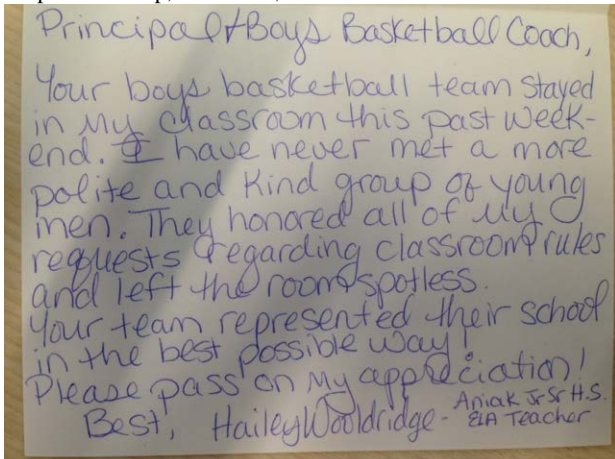 Principal & Boys Basketball Coach,
Your boys basketball team stayed
in my classroom this past week-
end. I have never met a more
polite and kind group of young
men. They honored all of my
requests regarding classroom rules
and left the room spotless.
Your team represented their school
in the best possible way!
Please pass on my appreciation!
Best, Hailey Wooldridge - Aniak Jr Sr H.S.
ELA Teacher